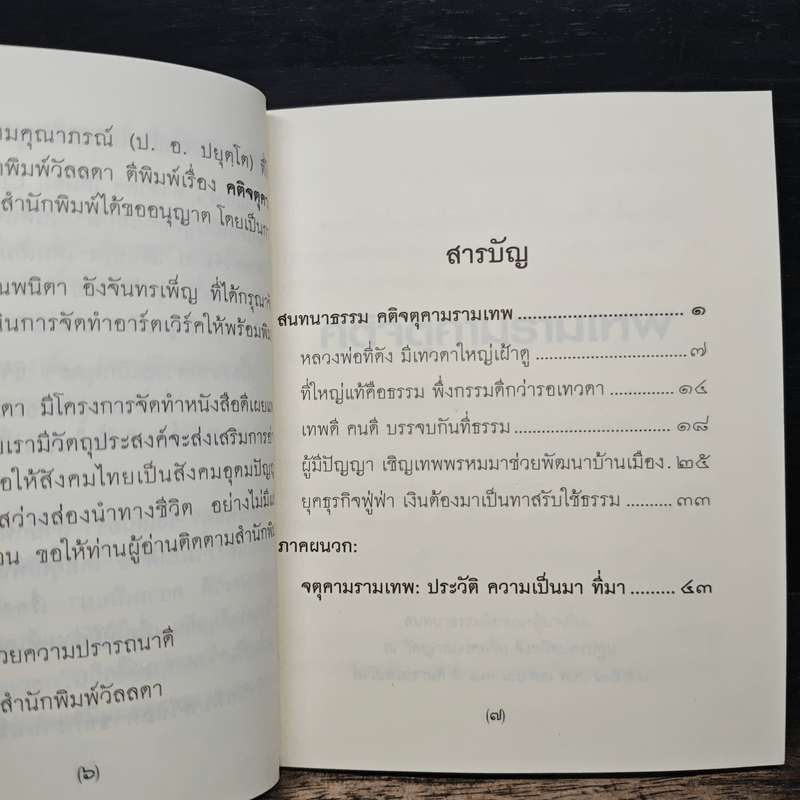 มคุณาภรณ์ (ป. อ. ปยุตฺโต) ที่
พิมพ์วัลลดา ตีพิมพ์เรื่อง คติจตุคา
สำนักพิมพ์ได้ขออนุญาต โดยเป็นกา
นพนิตา อังจันทรเพ็ญ ที่ได้กรุณา
นการจัดทำอาร์ตเวิร์คให้พร้อมพิม
ดา มีโครงการจัดทำหนังสือดีเผยแ
ยเรามีวัตถุประสงค์จะส่งเสริมการ
อให้สังคมไทยเป็นสังคมอุดมปัญญ
สว่างส่องนำทางชีวิต อย่างไม่มี
อน ขอให้ท่านผู้อ่านติดตามสำนักพิ
วยความปรารถนาดี
สำนักพิมพ์วัลลดา
(๖)
สารบัญ
สนทนาธรรม คติจตุคามรามเทพ ................................ ๑
หลวงพ่อที่ดัง มีเทวดาใหญ่เฝ้าดู ................................ ๗
ที่ใหญ่แท้คือธรรม พึ่งกรรมดีกว่ารอเทวดา ............. ๑๔
เทพดี คนดี บรรจบกันที่ธรรม ................................ ๑๘
ผู้มีปัญญา เชิญเทพพรหมมาช่วยพัฒนาบ้านเมือง . ๒๕
ยุคธุรกิจฟู่ฟ่า เงินต้องมาเป็นทาสรับใช้ธรรม .......... ๓๓
ภาคผนวก:
จตุคามรามเทพ: ประวัติ ความเป็นมา ที่มา ......... ๔๓
(๗)